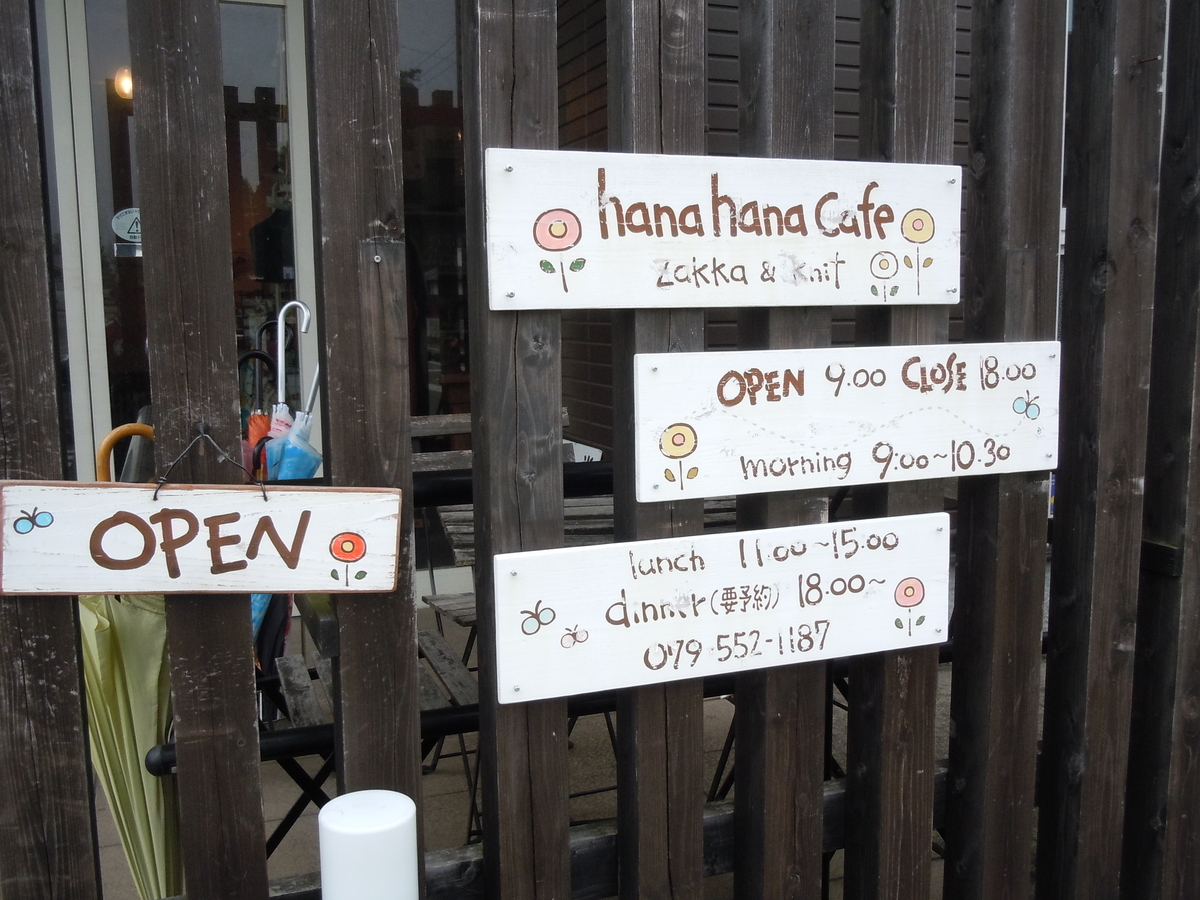 hana hana Cafe
zakka & knit
OPEN 9.00 CLOSE 18.00
morning 9:00~10.30
OPEN
lunch 11:00~15:00
dinner (要予約) 18.00~
079-552-1187